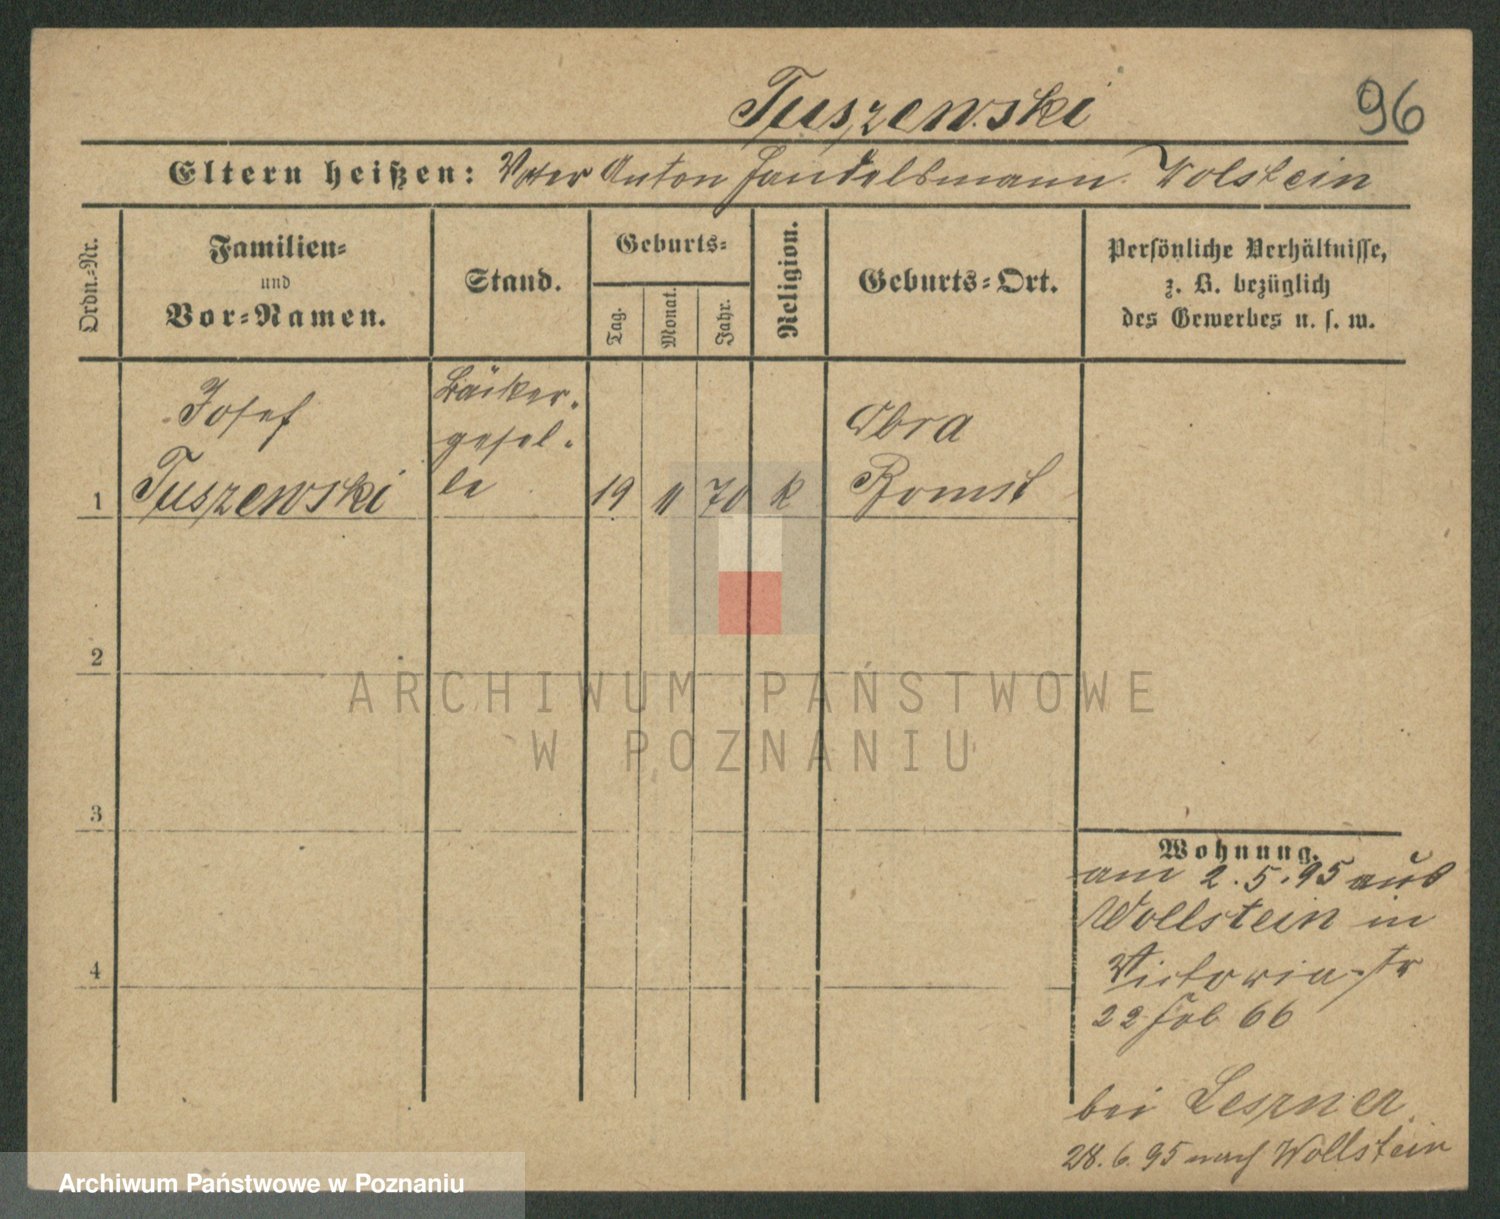 Tuszewski
96
Eltern heißen: Vater Anton Handelsmann Wolstein
Ordn.-Nr.
Familien-
und
Vor-Namen.
Stand.
Geburts-
Tag.
Monat.
Jahr.
Religion.
Geburts-Ort.
Persönliche Verhältnisse,
z. B. bezüglich
des Gewerbes u. s. w.
Josef
Tuszewski
Bäcker-
gesel-
le
1
19 11 70 k
Obra
Bomst
2
3
4
Wohnung.
am 2.5.95 aus
Wollstein in
Victoria-str
22 66
bei
28.6.95 nach Wollstein
ARCHIWUM PAŃSTWOWE
W POZNANIU
Archiwum Państwowe w Poznaniu